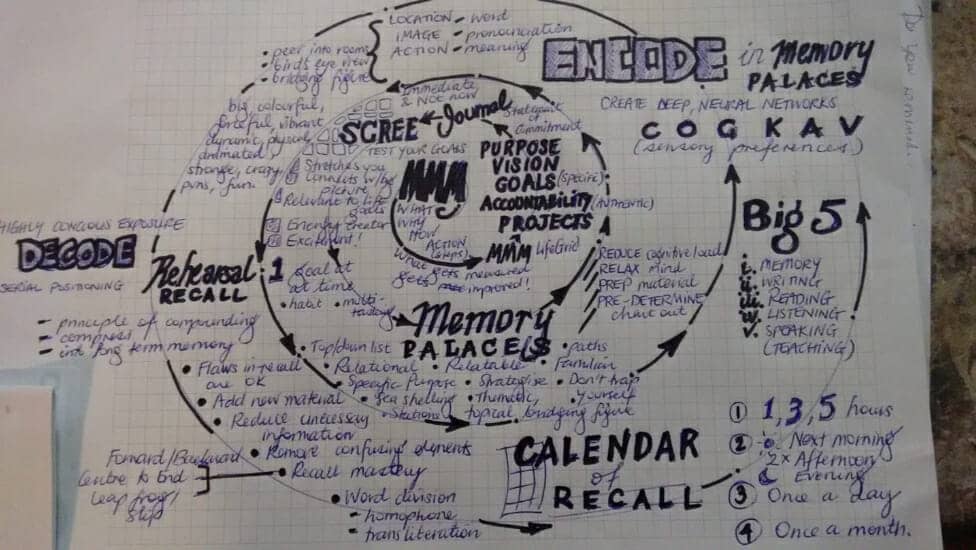 LOCATION - word
IMAGE - pronunciation
ACTION - meaning
• peer into rooms
• birds eye view
• bridging figure
ENCODE in Memory
PALACES
CREATE DEEP, NEURAL NETWORKS
C O G K A V
(sensory preferences)
Do you
big, colourful,
vibrant
dynamic, physical
animated,
strange, crazy,
puns, fun.
Immediate
& Not now
SCREE ← Journal
Statement
of
Commitment
TEST YOUR GOALS
Stretches you
Connects w/ big
picture
Relevant to life
goals
Energy Creator
Excitement!
MMM
WHAT
WHY
HOW
ACTION
(steps)
What gets measured
gets improved!
PURPOSE
VISION
GOALS (specific)
ACCOUNTABILITY (AUTHENTIC)
PROJECTS
MMM LifeGrid
HIGHLY CONCIOUS EXPOSURE
DECODE
SERIAL POSITIONING
Rehearsal
RECALL
1
goal at
a time
• habit
• multi-
tasking
- principle of compounding
- compress
- into long term memory
REDUCE cognitive load
RELAX mind
PREP material
PRE-DETERMINE
chart out
Big 5
i. MEMORY
ii. WRITING
iii. READING
iv. LISTENING
v. SPEAKING
(TEACHING)
Memory
PALACES
• Top/down list
• Relational
• Relatable
• paths
• Familiar
• Specific Purpose
• Strategise
• Don't trap
yourself
• Sea shelling
• Thematic,
stations
topical bridging figure
• Flaws in recall
are OK
• Add new material
• Reduce unnecessay
information
• Remove confusing elements
• Recall mastery
Forward/Backward
Centre to End
Leap frog/
Skip
• Word division
- homophone
- transliteration
CALENDAR
of
RECALL
① 1, 3, 5 hours
② Next morning
2x Afternoon
Evening
③ Once a day
④ Once a month.